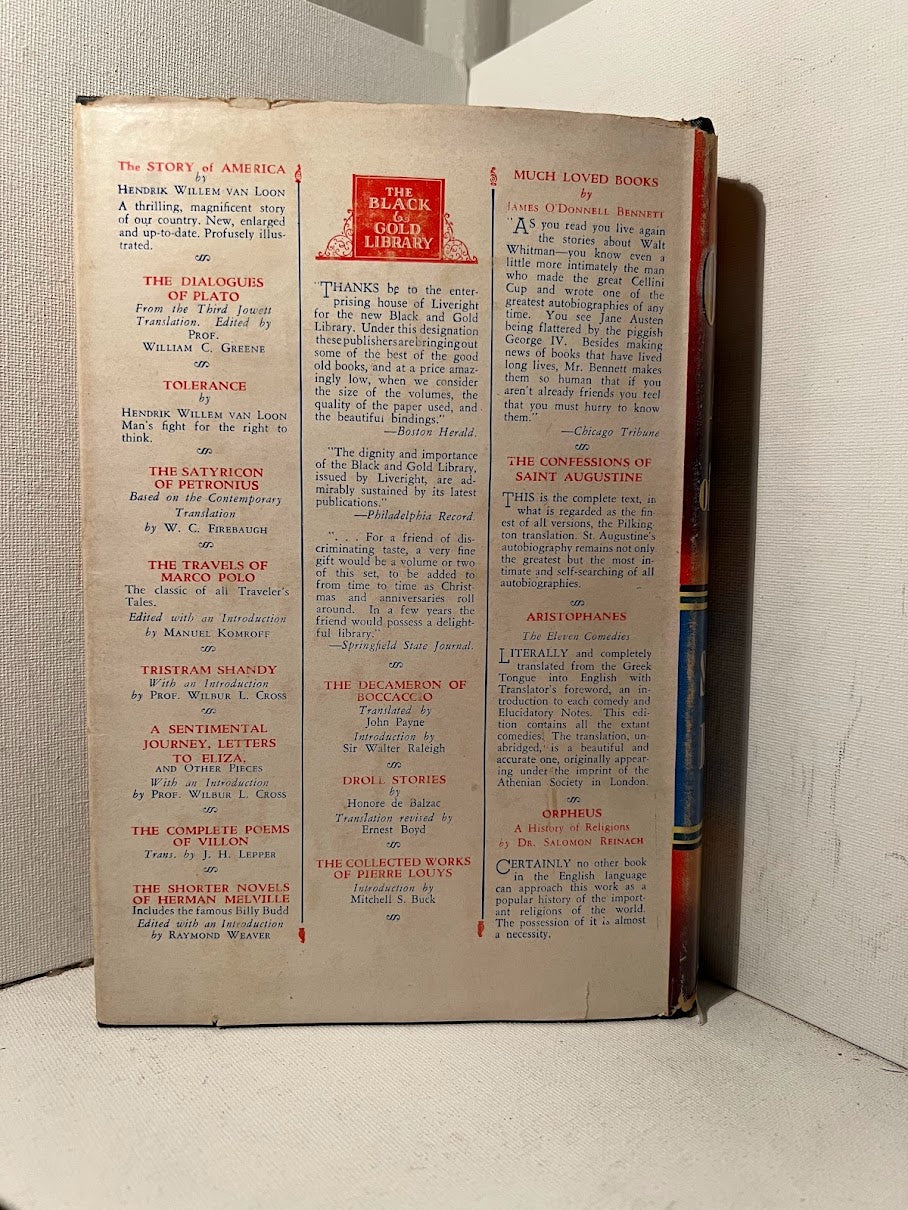 The STORY of AMERICA
by
HENDRIK WILLEM VAN LOON
A thrilling, magnificent story
of our country. New, enlarged
and up-to-date. Profusely illus-
trated.
THE DIALOGUES
OF PLATO
From the Third Jowett
Translation. Edited by
PROF.
WILLIAM C. GREENE
TOLERANCE
by
HENDRIK WILLEM VAN LOON
Man's fight for the right to
think.
THE SATYRICON
OF PETRONIUS
Based on the Contemporary
Translation
by W. C. FIREBAUGH
THE TRAVELS OF
MARCO POLO
The classic of all Traveler's
Tales.
Edited with an Introduction
by MANUEL KOMROFF
TRISTRAM SHANDY
With an Introduction
by PROF. WILBUR L. CROSS
A SENTIMENTAL
JOURNEY, LETTERS
TO ELIZA,
AND OTHER PIECES
With an Introduction
by PROF. WILBUR L. CROSS
THE COMPLETE POEMS
OF VILLON
Trans. by J. H. LEPPER
THE SHORTER NOVELS
OF HERMAN MELVILLE
Includes the famous Billy Budd
Edited with an Introduction
by RAYMOND WEAVER
THE
BLACK
&
GOLD
LIBRARY
"THANKS be to the enter-
prising house of Liveright
for the new Black and Gold
Library. Under this designation
these publishers are bringing out
some of the best of the good
old books, and at a price amaz-
ingly low, when we consider
the size of the volumes, the
quality of the paper used, and
the beautiful bindings."
—Boston Herald.
"The dignity and importance
of the Black and Gold Library,
issued by Liveright, are ad-
mirably sustained by its latest
publications."
—Philadelphia Record.
". . . For a friend of dis-
criminating taste, a very fine
gift would be a volume or two
of this set, to be added to
from time to time as Christ-
mas and anniversaries roll
around. In a few years the
friend would possess a delight-
ful library."
—Springfield State Journal.
THE DECAMERON OF
BOCCACCIO
Translated by
John Payne
Introduction by
Sir Walter Raleigh
DROLL STORIES
by
Honore de Balzac
Translation revised by
Ernest Boyd
THE COLLECTED WORKS
OF PIERRE LOUYS
Introduction by
Mitchell S. Buck
MUCH LOVED BOOKS
by
JAMES O'DONNELL BENNETT
"AS you read you live again
the stories about Walt
Whitman—you know even a
little more intimately the man
who made the great Cellini
Cup and wrote one of the
greatest autobiographies of any
time. You see Jane Austen
being flattered by the piggish
George IV. Besides making
news of books that have lived
long lives, Mr. Bennett makes
them so human that if you
aren't already friends you feel
that you must hurry to know
them."
—Chicago Tribune
THE CONFESSIONS OF
SAINT AUGUSTINE
THIS is the complete text, in
what is regarded as the fin-
est of all versions, the Pilking-
ton translation. St. Augustine's
autobiography remains not only
the greatest but the most in-
timate and self-searching of all
autobiographies.
ARISTOPHANES
The Eleven Comedies
LITERALLY and completely
translated from the Greek
Tongue into English with
Translator's foreword, an in-
troduction to each comedy and
Elucidatory Notes. This edi-
tion contains all the extant
comedies. The translation, un-
abridged, is a beautiful and
accurate one, originally appear-
ing under the imprint of the
Athenian Society in London.
ORPHEUS
A History of Religions
by DR. SALOMON REINACH
CERTAINLY no other book
in the English language
can approach this work as a
popular history of the import-
ant religions of the world.
The possession of it is almost
a necessity.